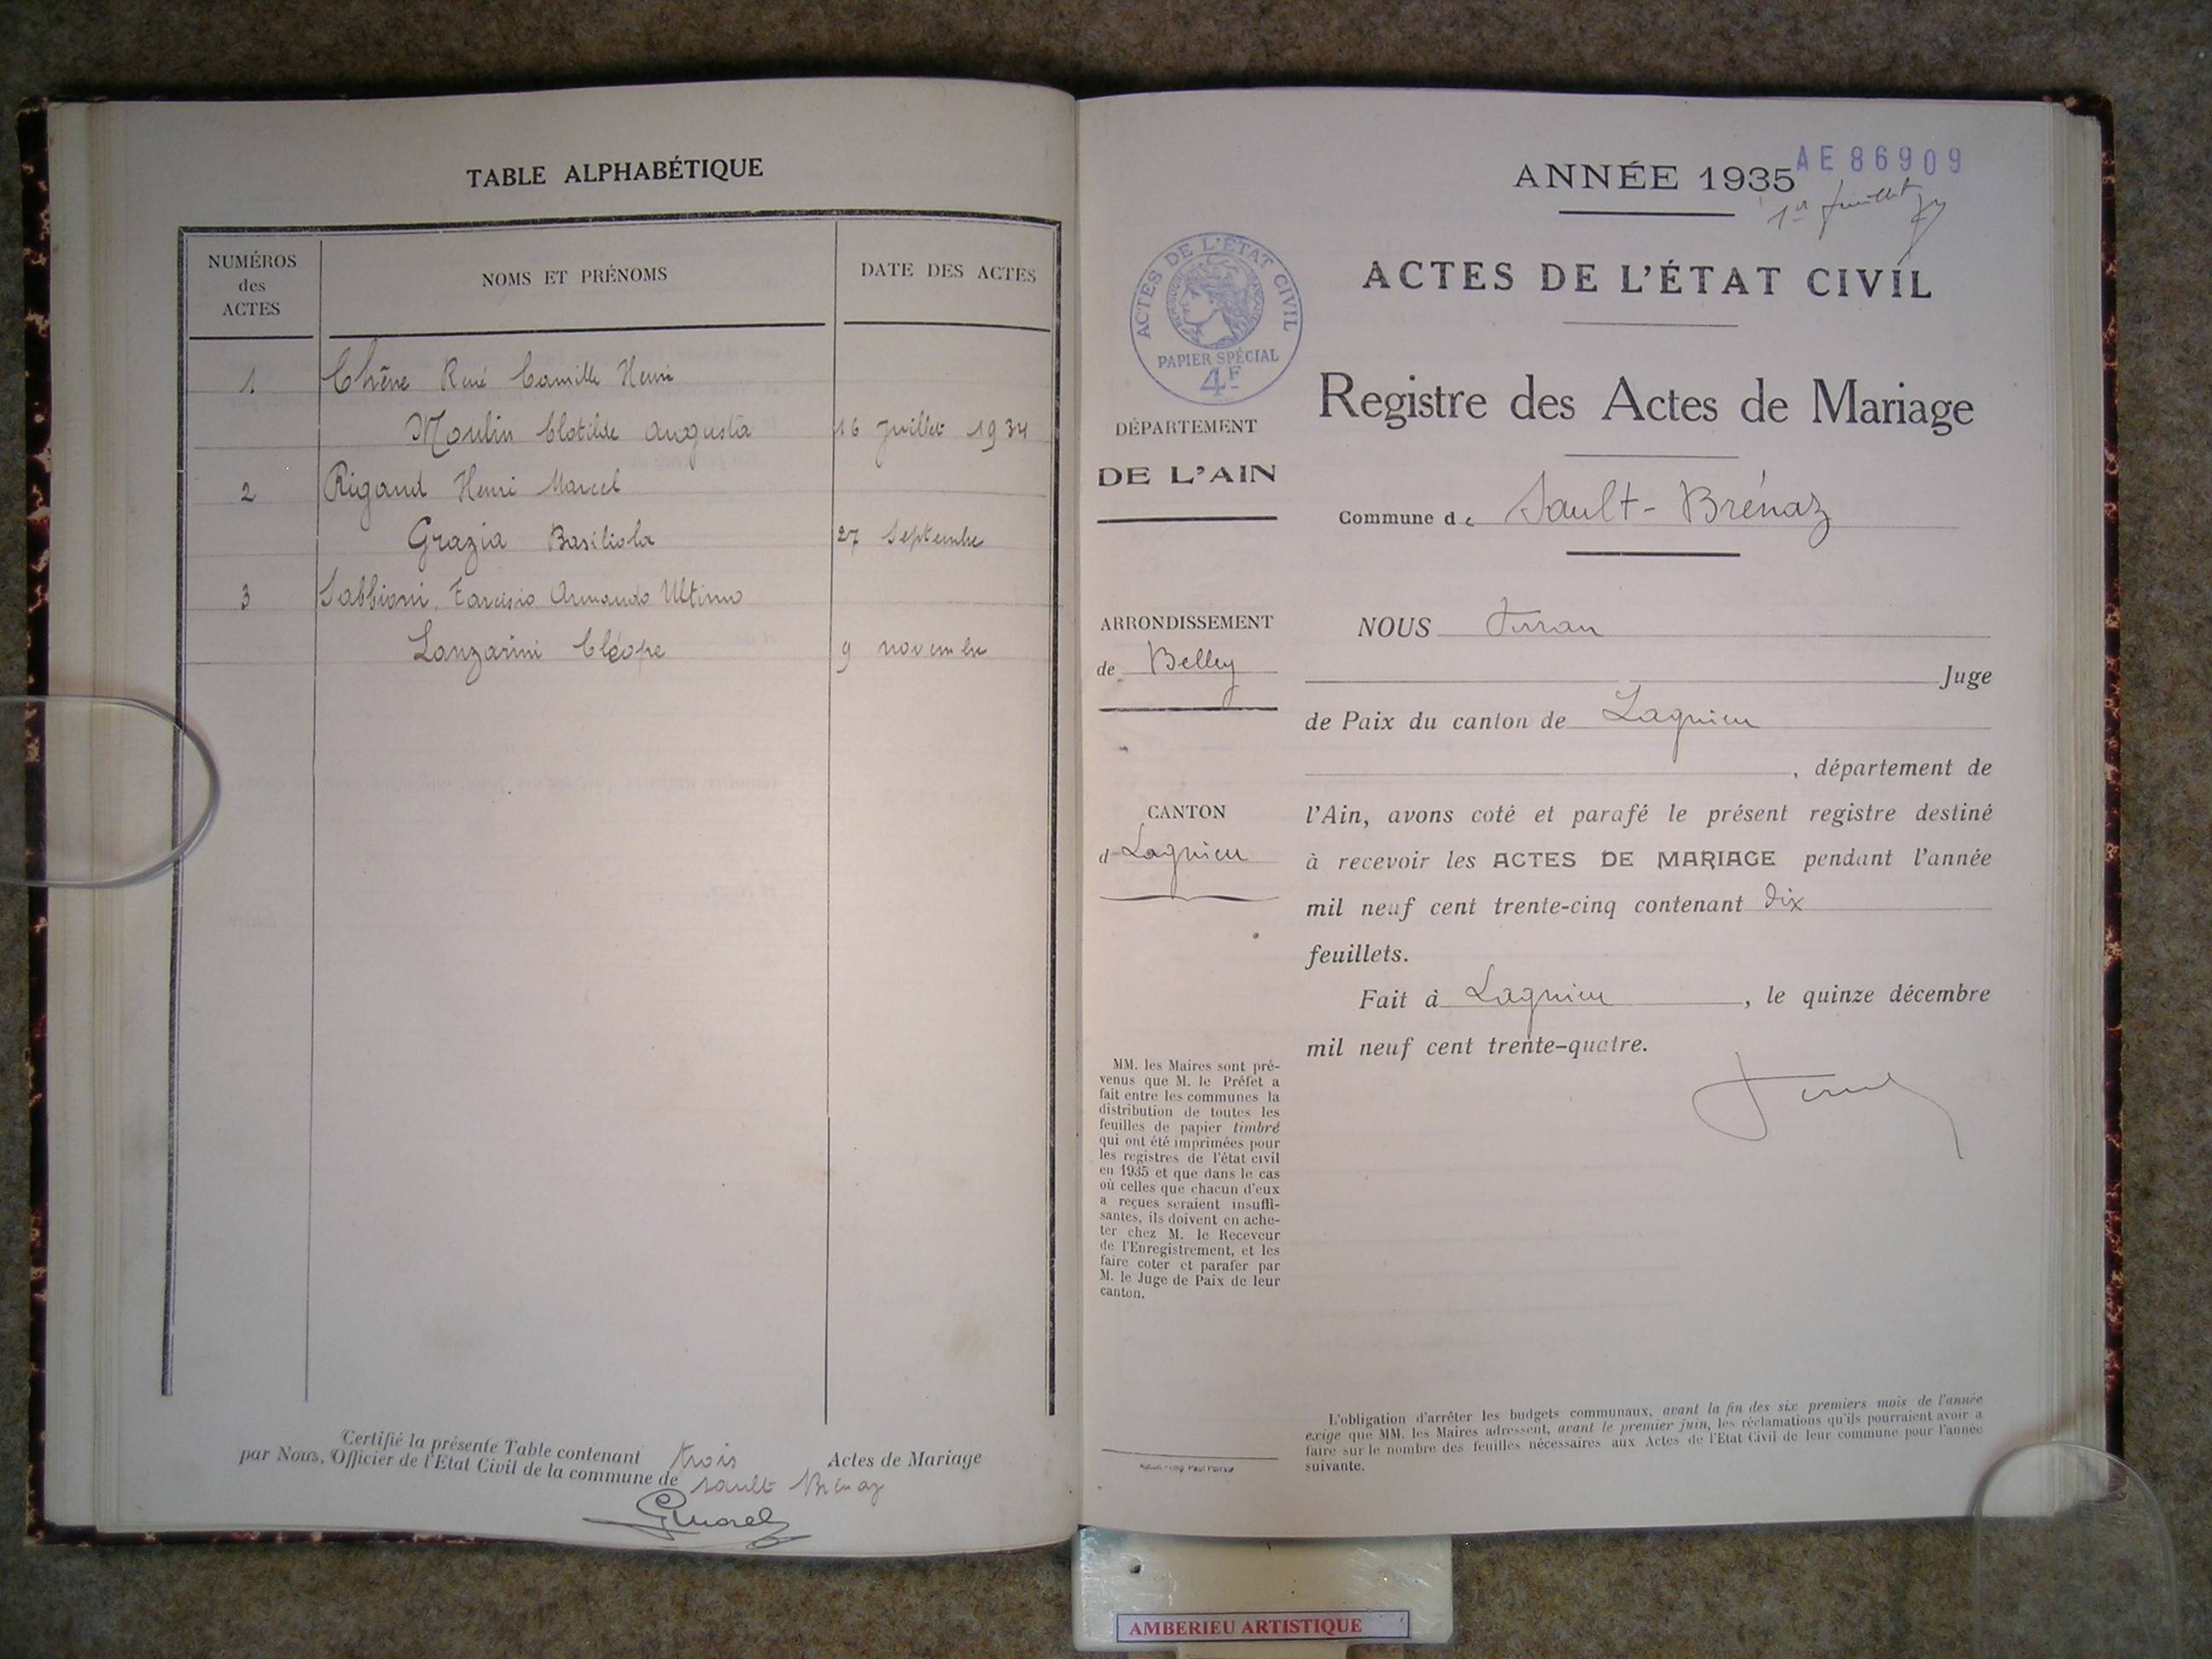 TABLE ALPHABÉTIQUE
NUMÉROS
des
ACTES
NOMS ET PRÉNOMS
DATE DES ACTES
1 Chêne René Camille Henri
Moulin Clotilde Augusta 16 Juillet 1934
2 Rigaud Henri Marcel
Grazia Basiliola 27 Septembre
3 Sabbioni Tarcisio Armando Ultimo
Lanzarini Cléope 9 novembre
Certifié la présente Table contenant trois Actes de Mariage
par Nous, Officier de l'Etat Civil de la commune de Sault Brénaz
AE 86909
ANNÉE 1935
1er feuillet
ACTES DE L'ÉTAT CIVIL
ACTES DE L'ÉTAT CIVIL
PAPIER SPÉCIAL
4F
Registre des Actes de Mariage
DÉPARTEMENT
DE L'AIN
Commune de Sault-Brénaz
ARRONDISSEMENT
de Belley
CANTON
d Lagnieu
NOUS
Juge
de Paix du canton de Lagnieu
, département de
l'Ain, avons coté et parafé le présent registre destiné
à recevoir les ACTES DE MARIAGE pendant l'année
mil neuf cent trente-cinq contenant dix
feuillets.
Fait à Lagnieu, le quinze décembre
mil neuf cent trente-quatre.
MM. les Maires sont pré-
venus que M. le Préfet a
fait entre les communes la
distribution de toutes les
feuilles de papier timbré
qui ont été imprimées pour
les registres de l'état civil
en 1935 et que dans le cas
où celles que chacun d'eux
a reçues seraient insuffi-
santes, ils doivent en ache-
ter chez M. le Receveur
de l'Enregistrement, et les
faire coter et parafer par
M. le Juge de Paix de leur
canton.
L'obligation d'arrêter les budgets communaux, avant la fin des six premiers mois de l'année
exige que MM. les Maires adressent, avant le premier juin, les réclamations qu'ils pourraient avoir a
faire sur le nombre des feuilles nécessaires aux Actes de l'Etat Civil de leur commune pour l'année
suivante.
AMBERIEU ARTISTIQUE